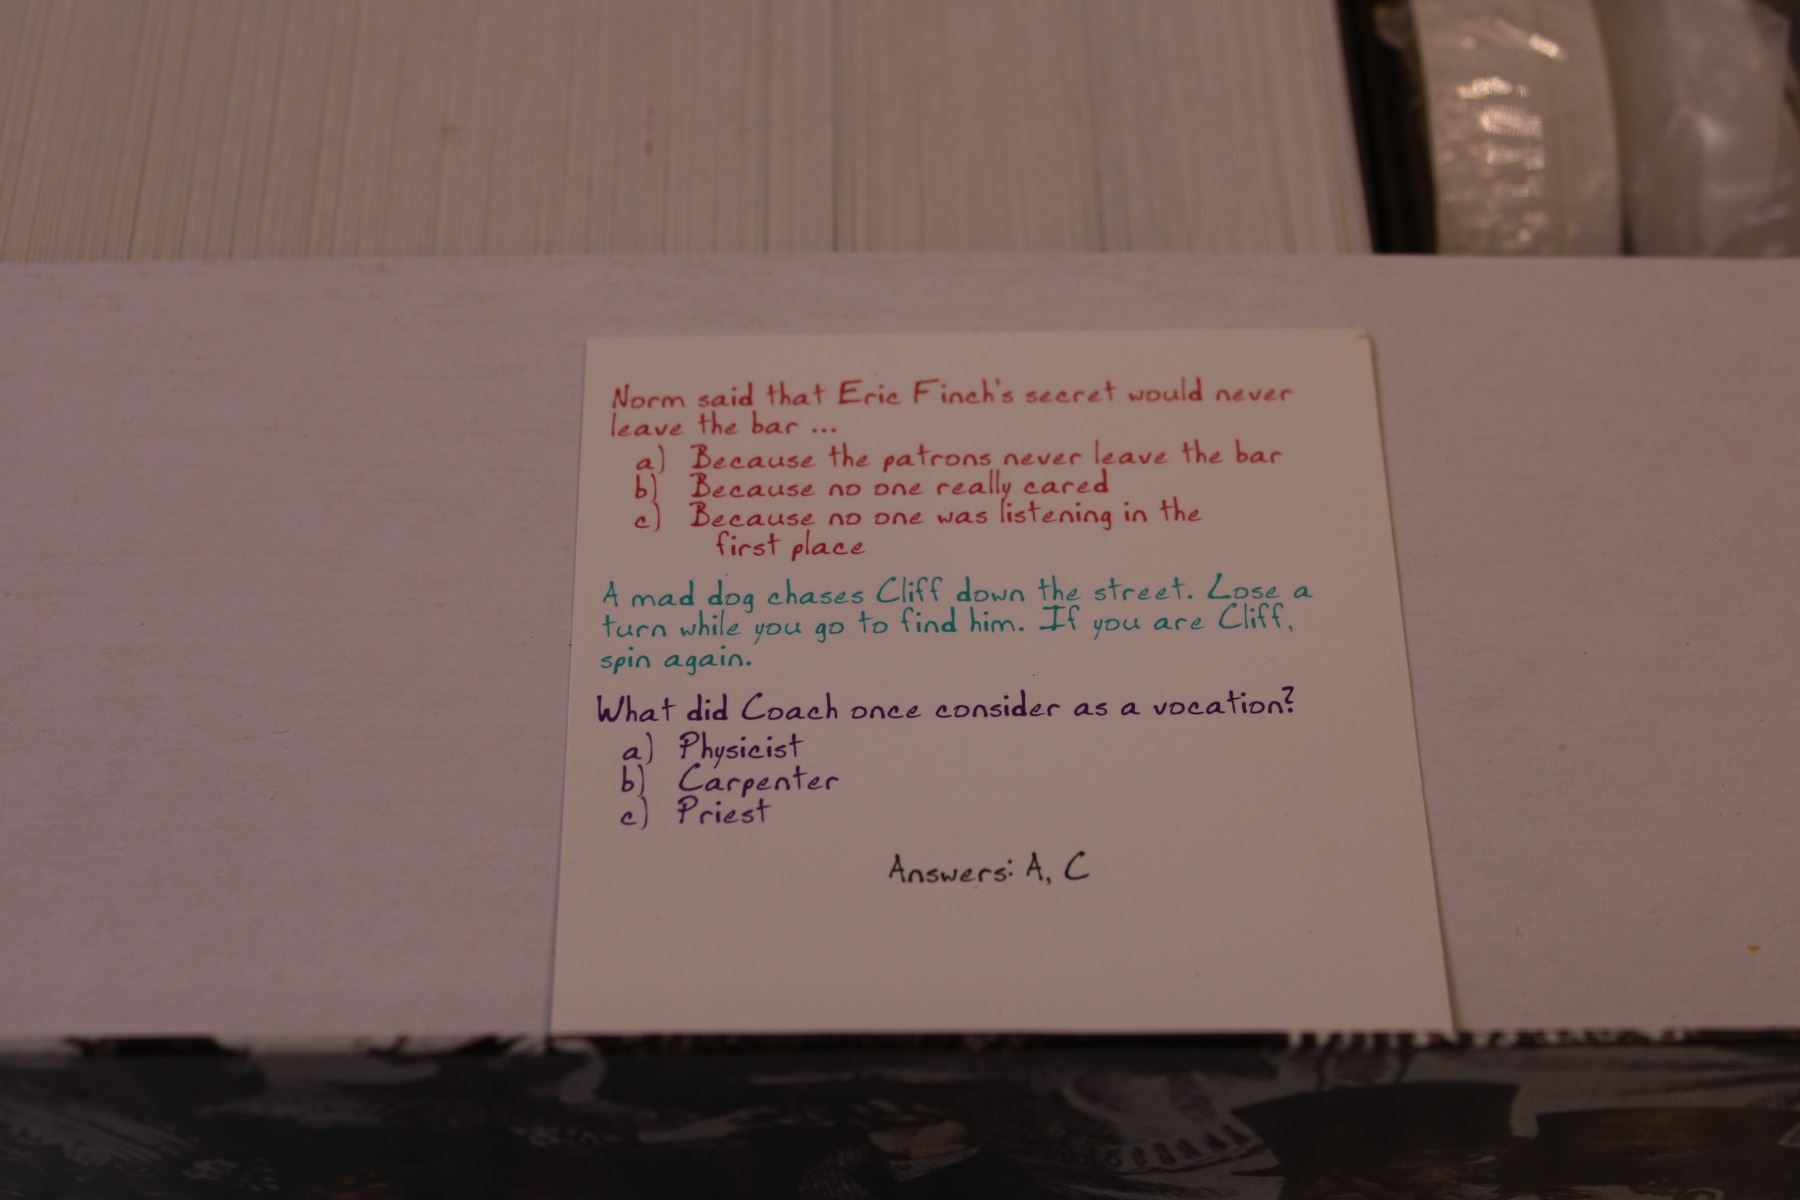 Norm said that Eric Finch's secret would never
leave the bar ...
a) Because the patrons never leave the bar
b) Because no one really cared
c) Because no one was listening in the
first place
A mad dog chases Cliff down the street. Lose a
turn while you go to find him. If you are Cliff,
spin again.
What did Coach once consider as a vocation?
a) Physicist
b) Carpenter
c) Priest
Answers: A, C